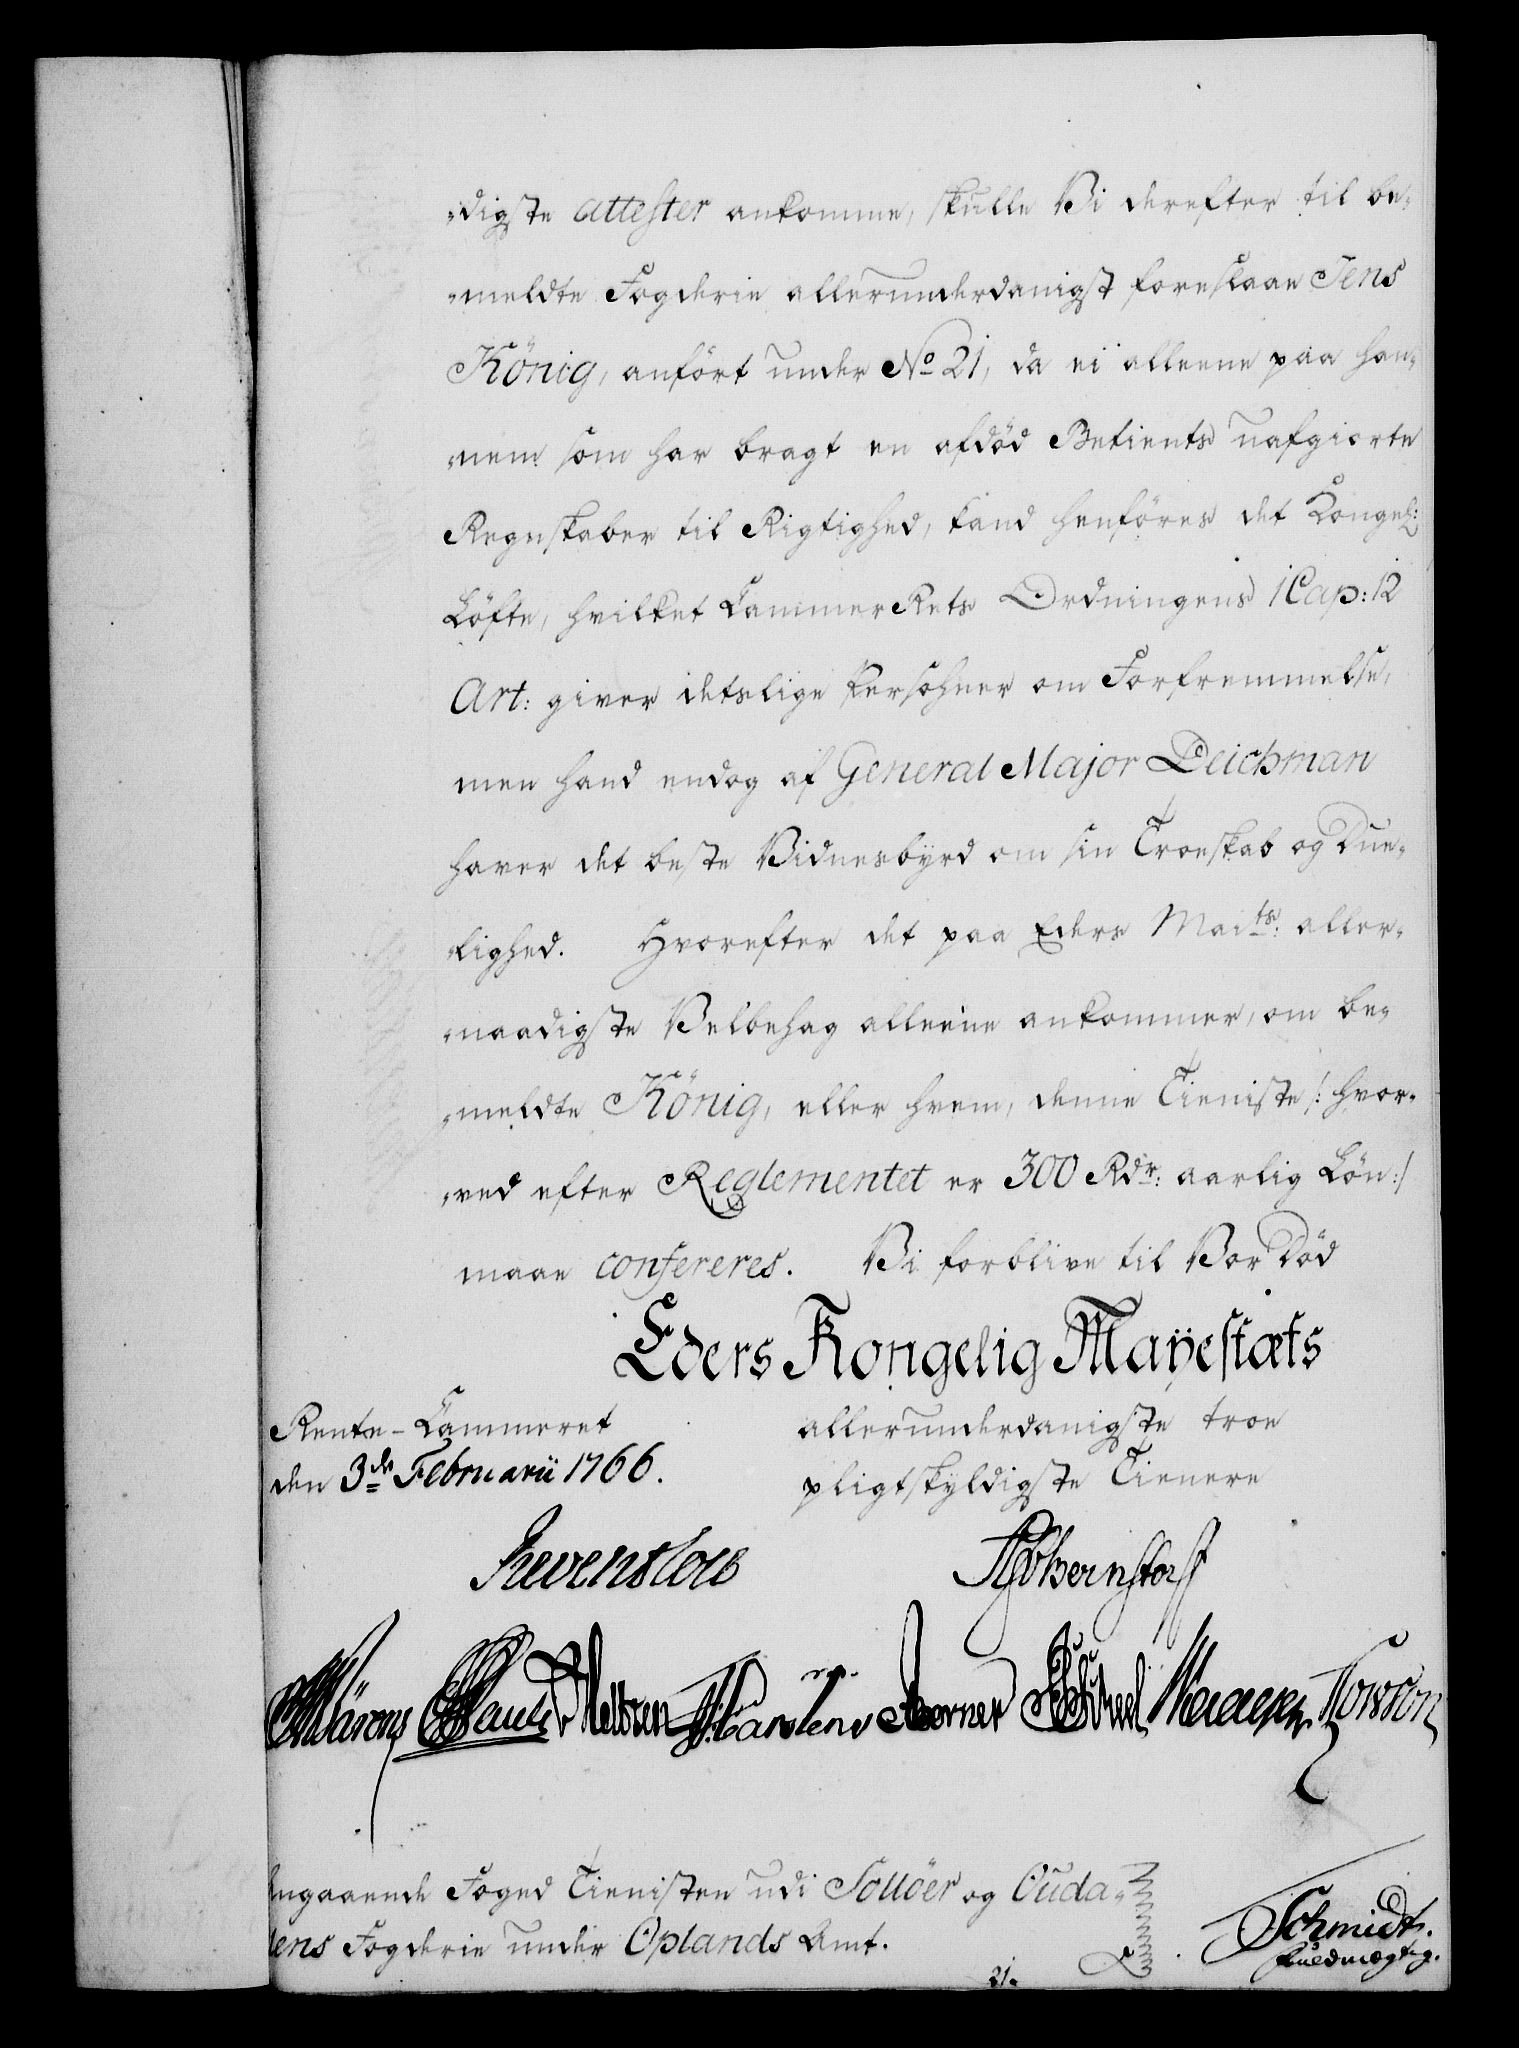 -digste attester ankomme, skulle Vi derefter til be-
-meldte Fogderie allerunderdanigst foreslaae Jens
König, anført under No 21, da ei alleene paa han-
-nem som har bragt en afdød Betients uafgiorte
Regnskaber til Rigtighed, kand henføres det Kongel:
Løfte, hvilket Cammer Rets Ordningens 1 Cap: 12
Art: giver detslige Persohner om Forfremmelse,
men hand endog af General Major Deichman
haver det beste Vidnesbyrd om sin Troeskab og Due-
-lighed. Hvorefter det paa Eders Maits: aller-
-naadigste Velbehag alleene ankommer, om be-
-meldte König, eller hvem, denne Tieniste /: hvor-
-ved efter Reglementet er 300 Rdr: aarlig Løn :/
maae confereres. Vi forblive til Vor Død
Eders Kongelig Mayestæts
Rente-Cammeret allerunderdanigste troe
den 3de Februarii 1766. pligtskyldigste Tienere
Reventlow Bernstorff
Schmidt.
Fuldmægtig.
Angaaende Foged Tienisten udi Solløer og Ouda-
lens Fogderie under Oplands Amt.
21.